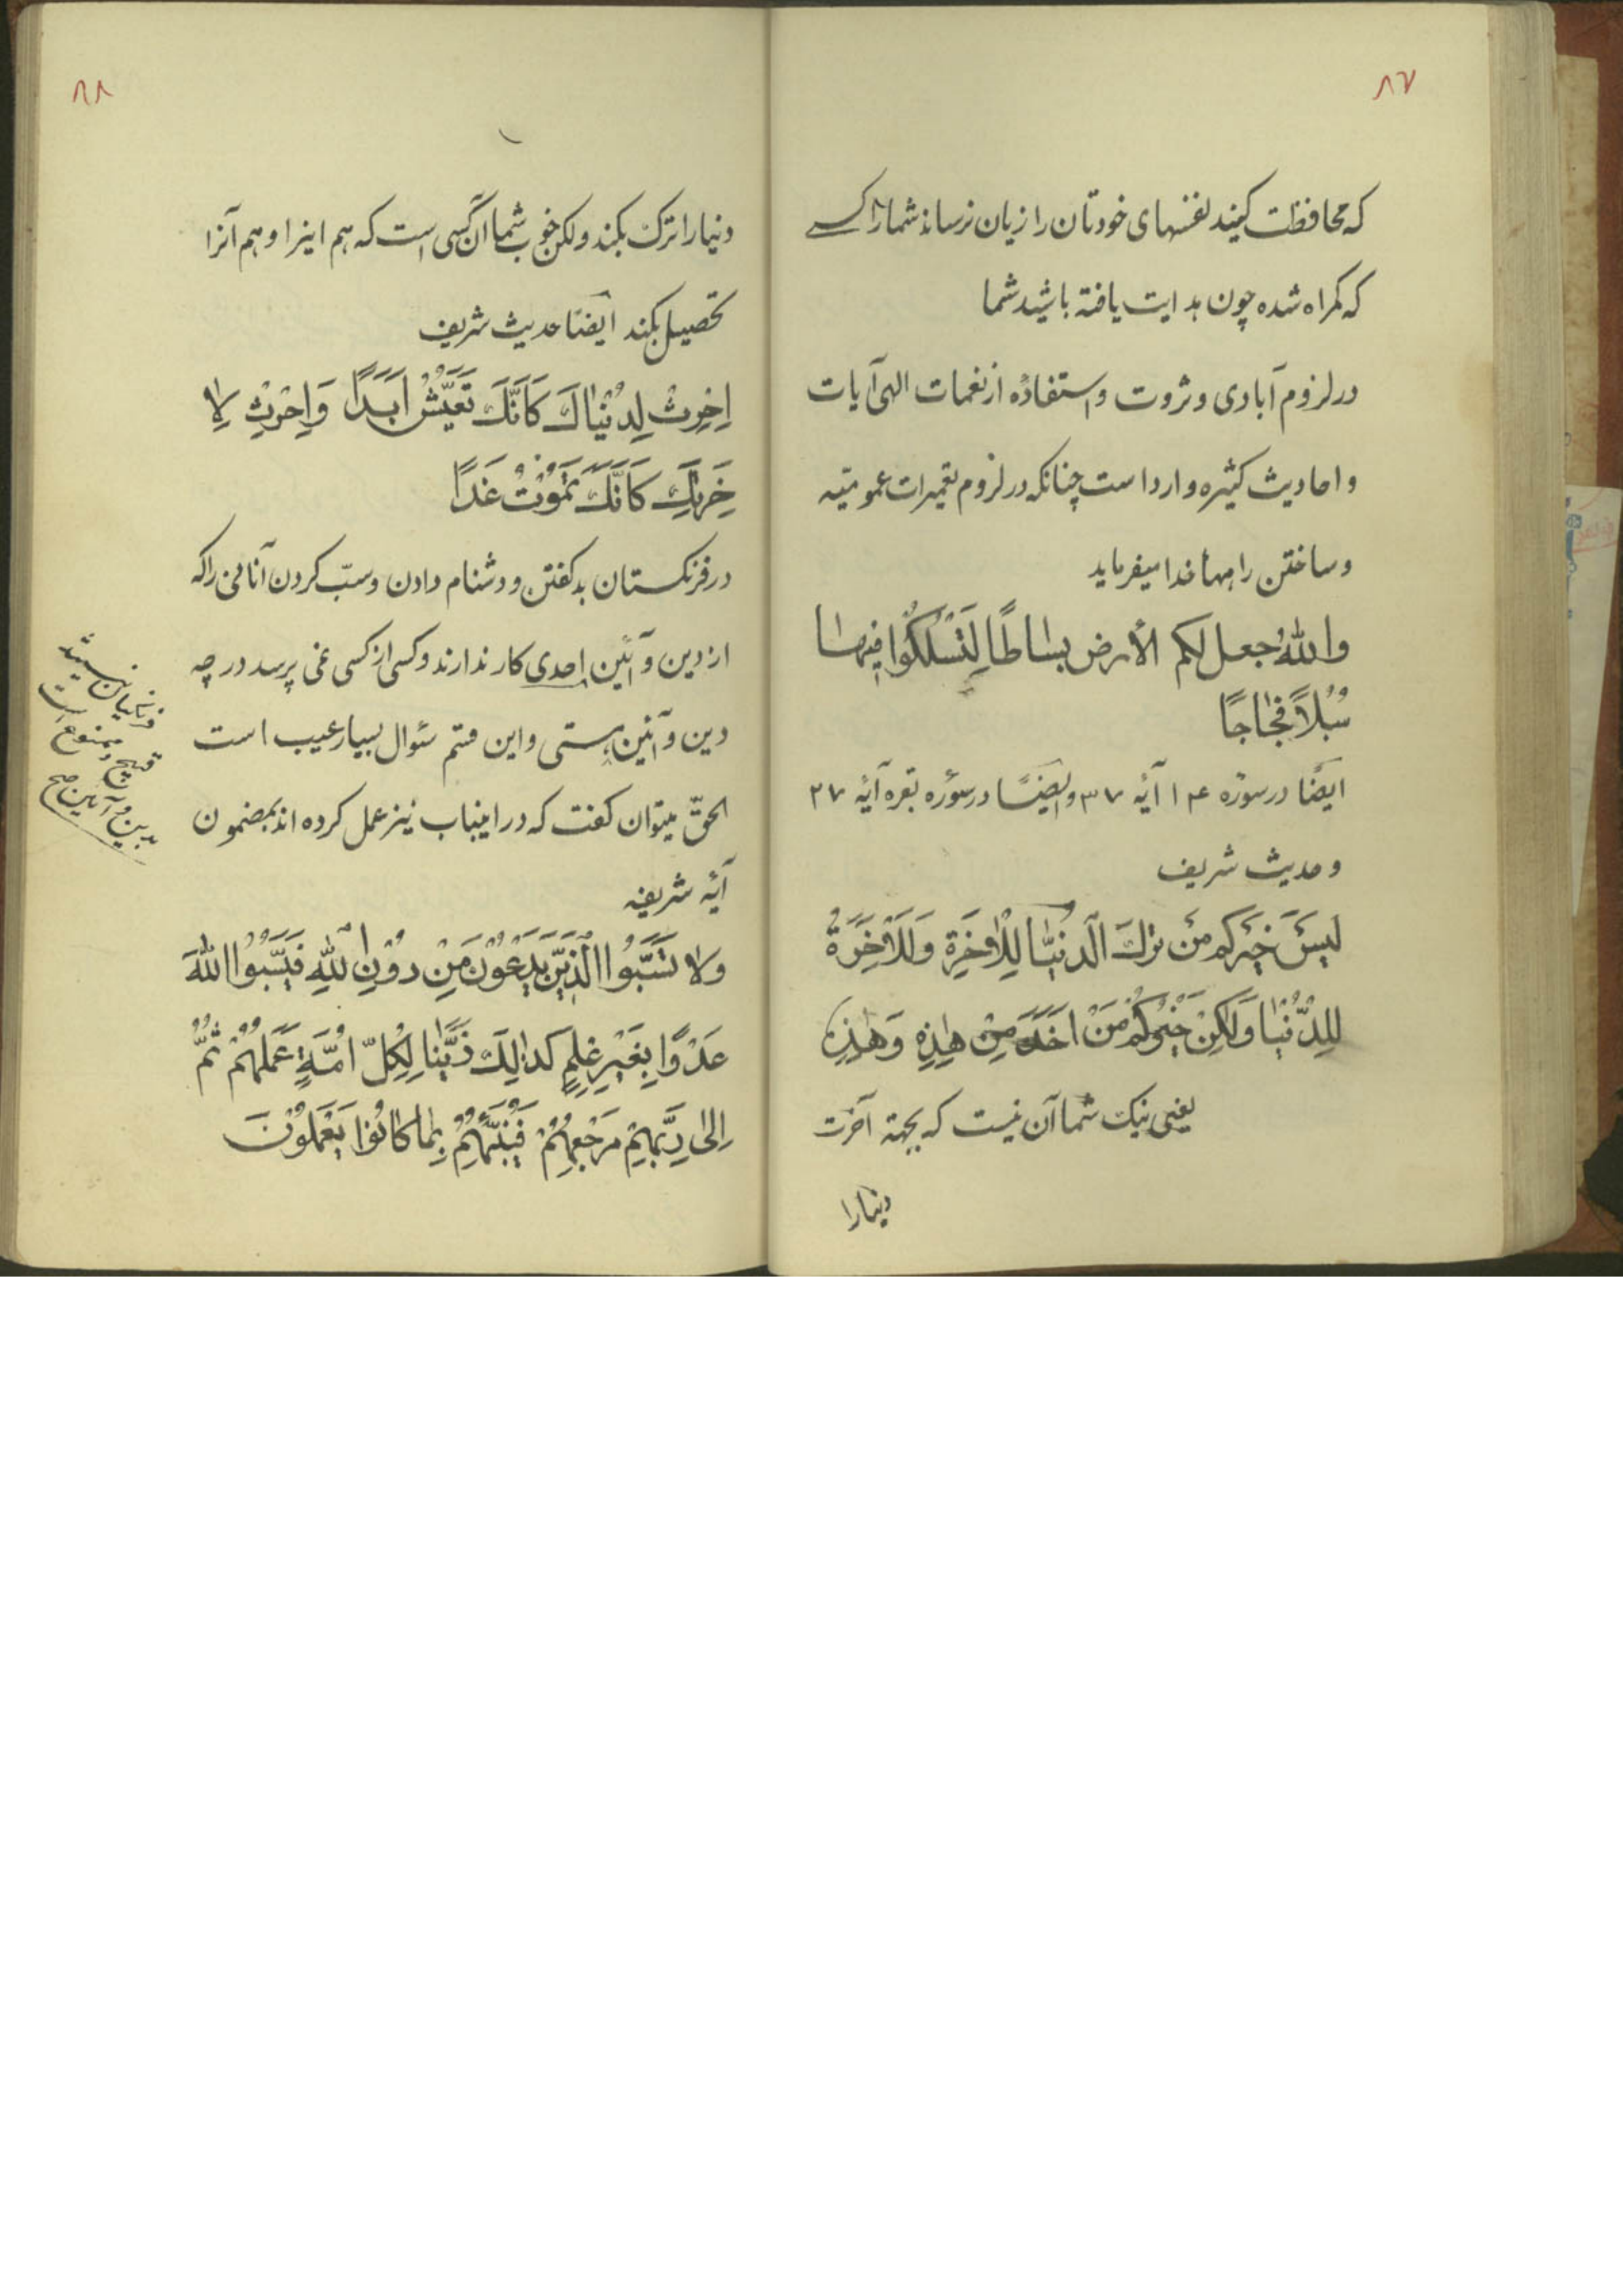 ۸۷
که محافظت کنید نفسهای خودتان را زیان نرساند شما را کسے
که کمراه شده چون هدایت یافته باشید شما
در لزوم آبادی و ثروت و استفاده از نغمات الهی آیات
و احادیث کثیره وارد است چنانکه در لزوم تعمیرات عمومیّه
و ساختن راهها خدا میفرماید
والله جعل لکم الأرض بساطًا لِتَسْلُکُوا فیها
سُبُلاً فِجاجًا
ایضًا در سورهٔ ۱۴ آیهٔ ۳۷ و ایضًا در سورهٔ بقره آیهٔ ۲۷
و حدیث شریف
لَیسَ خَیرکم مَنْ تركَ الدنیا لِلْآخِرَة وَلَا الْآخِرَةَ
لِلدُّنْیا وَلکِنْ خَیْرکُم مَنْ اَخَذَ مِنْ هذِهِ وَهذِهِ
یعنی نیک شما آن نیست که بجهتهٔ آخرت
دنیا را
۸۸
دنیا را ترک بکند ولکن خوب شما آن کسی است که هم اینرا و هم آنرا
تحصیل بکند ایضًا حدیث شریف
اِحْرِثْ لِدُنْیاكَ کَاَنَّكَ تَعیّشُ اَبَدًا وَاحْرُثْ لِا
خَرِتِكَ کَاَنَّكَ تَمُوْتُ غَدًا
در فرنکستان بد کفتن و دشنام دادن و سبّ کردن آنانی را که
از دین و آئین احدی کار ندارند و کسی از کسی نمی پرسد در چه
دین و آئین هستی و این قسم سئوال بسیار عیب است
الحقّ میتوان کفت که در اینباب نیز عمل کرده اند بمضمون
آیهٔ شریفه
ولا تَسُبُّوا الَّذِیْنَ یَدْعُوْنَ مِنْ دُوْنِ اللهِ فَیَسُبُّوا اللهَ
عَدْوًا بِغَیْرِ عِلمٍ کَذالِكَ زَیَّنا لِکُلّ اُمَّةٍ عَمَلَهُمْ ثُمَّ
اِلی رَبِّهِمْ مَرْجِعُهُمْ فَیُنَبِّئُهُمْ بِما کانُوا یَعْمَلُوْنَ
قبیح و ممنوع است
بدین و آئین صح